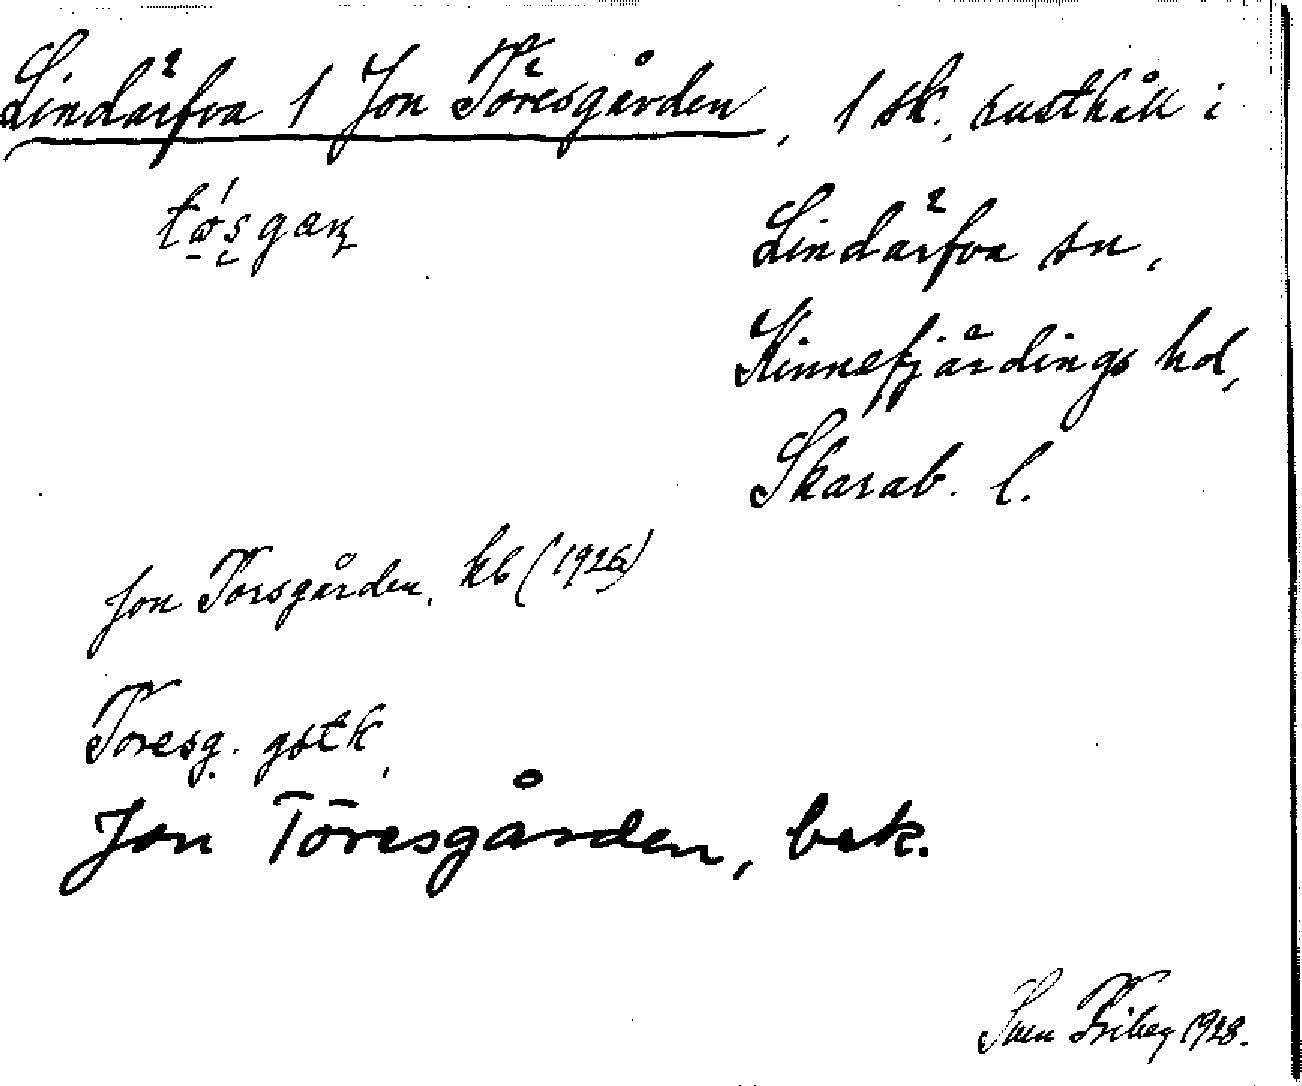 Lindärfva 1 Jon Töresgården, 1 sk. rusthåll i
Lindärfva sn,
Kinnefjärdings hd,
Skarab. l.
Jon Torsgården, kb (1926)
Toresg. gstk,
Jon Töresgården, bek.
Sven Friberg 1928.